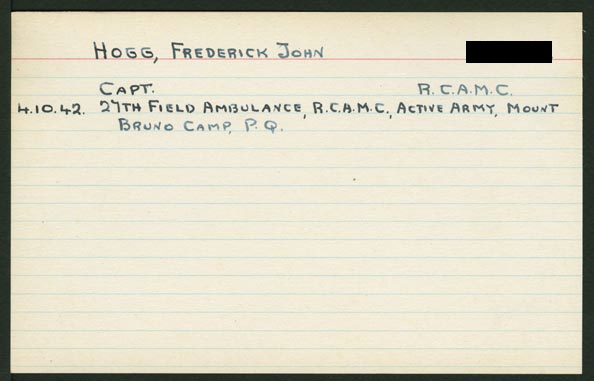 HOGG, FREDERICK JOHN
CAPT. R.C.A.M.C.
4.10.42. 27TH FIELD AMBULANCE, R.C.A.M.C., ACTIVE ARMY, MOUNT
BRUNO CAMP, P.Q.